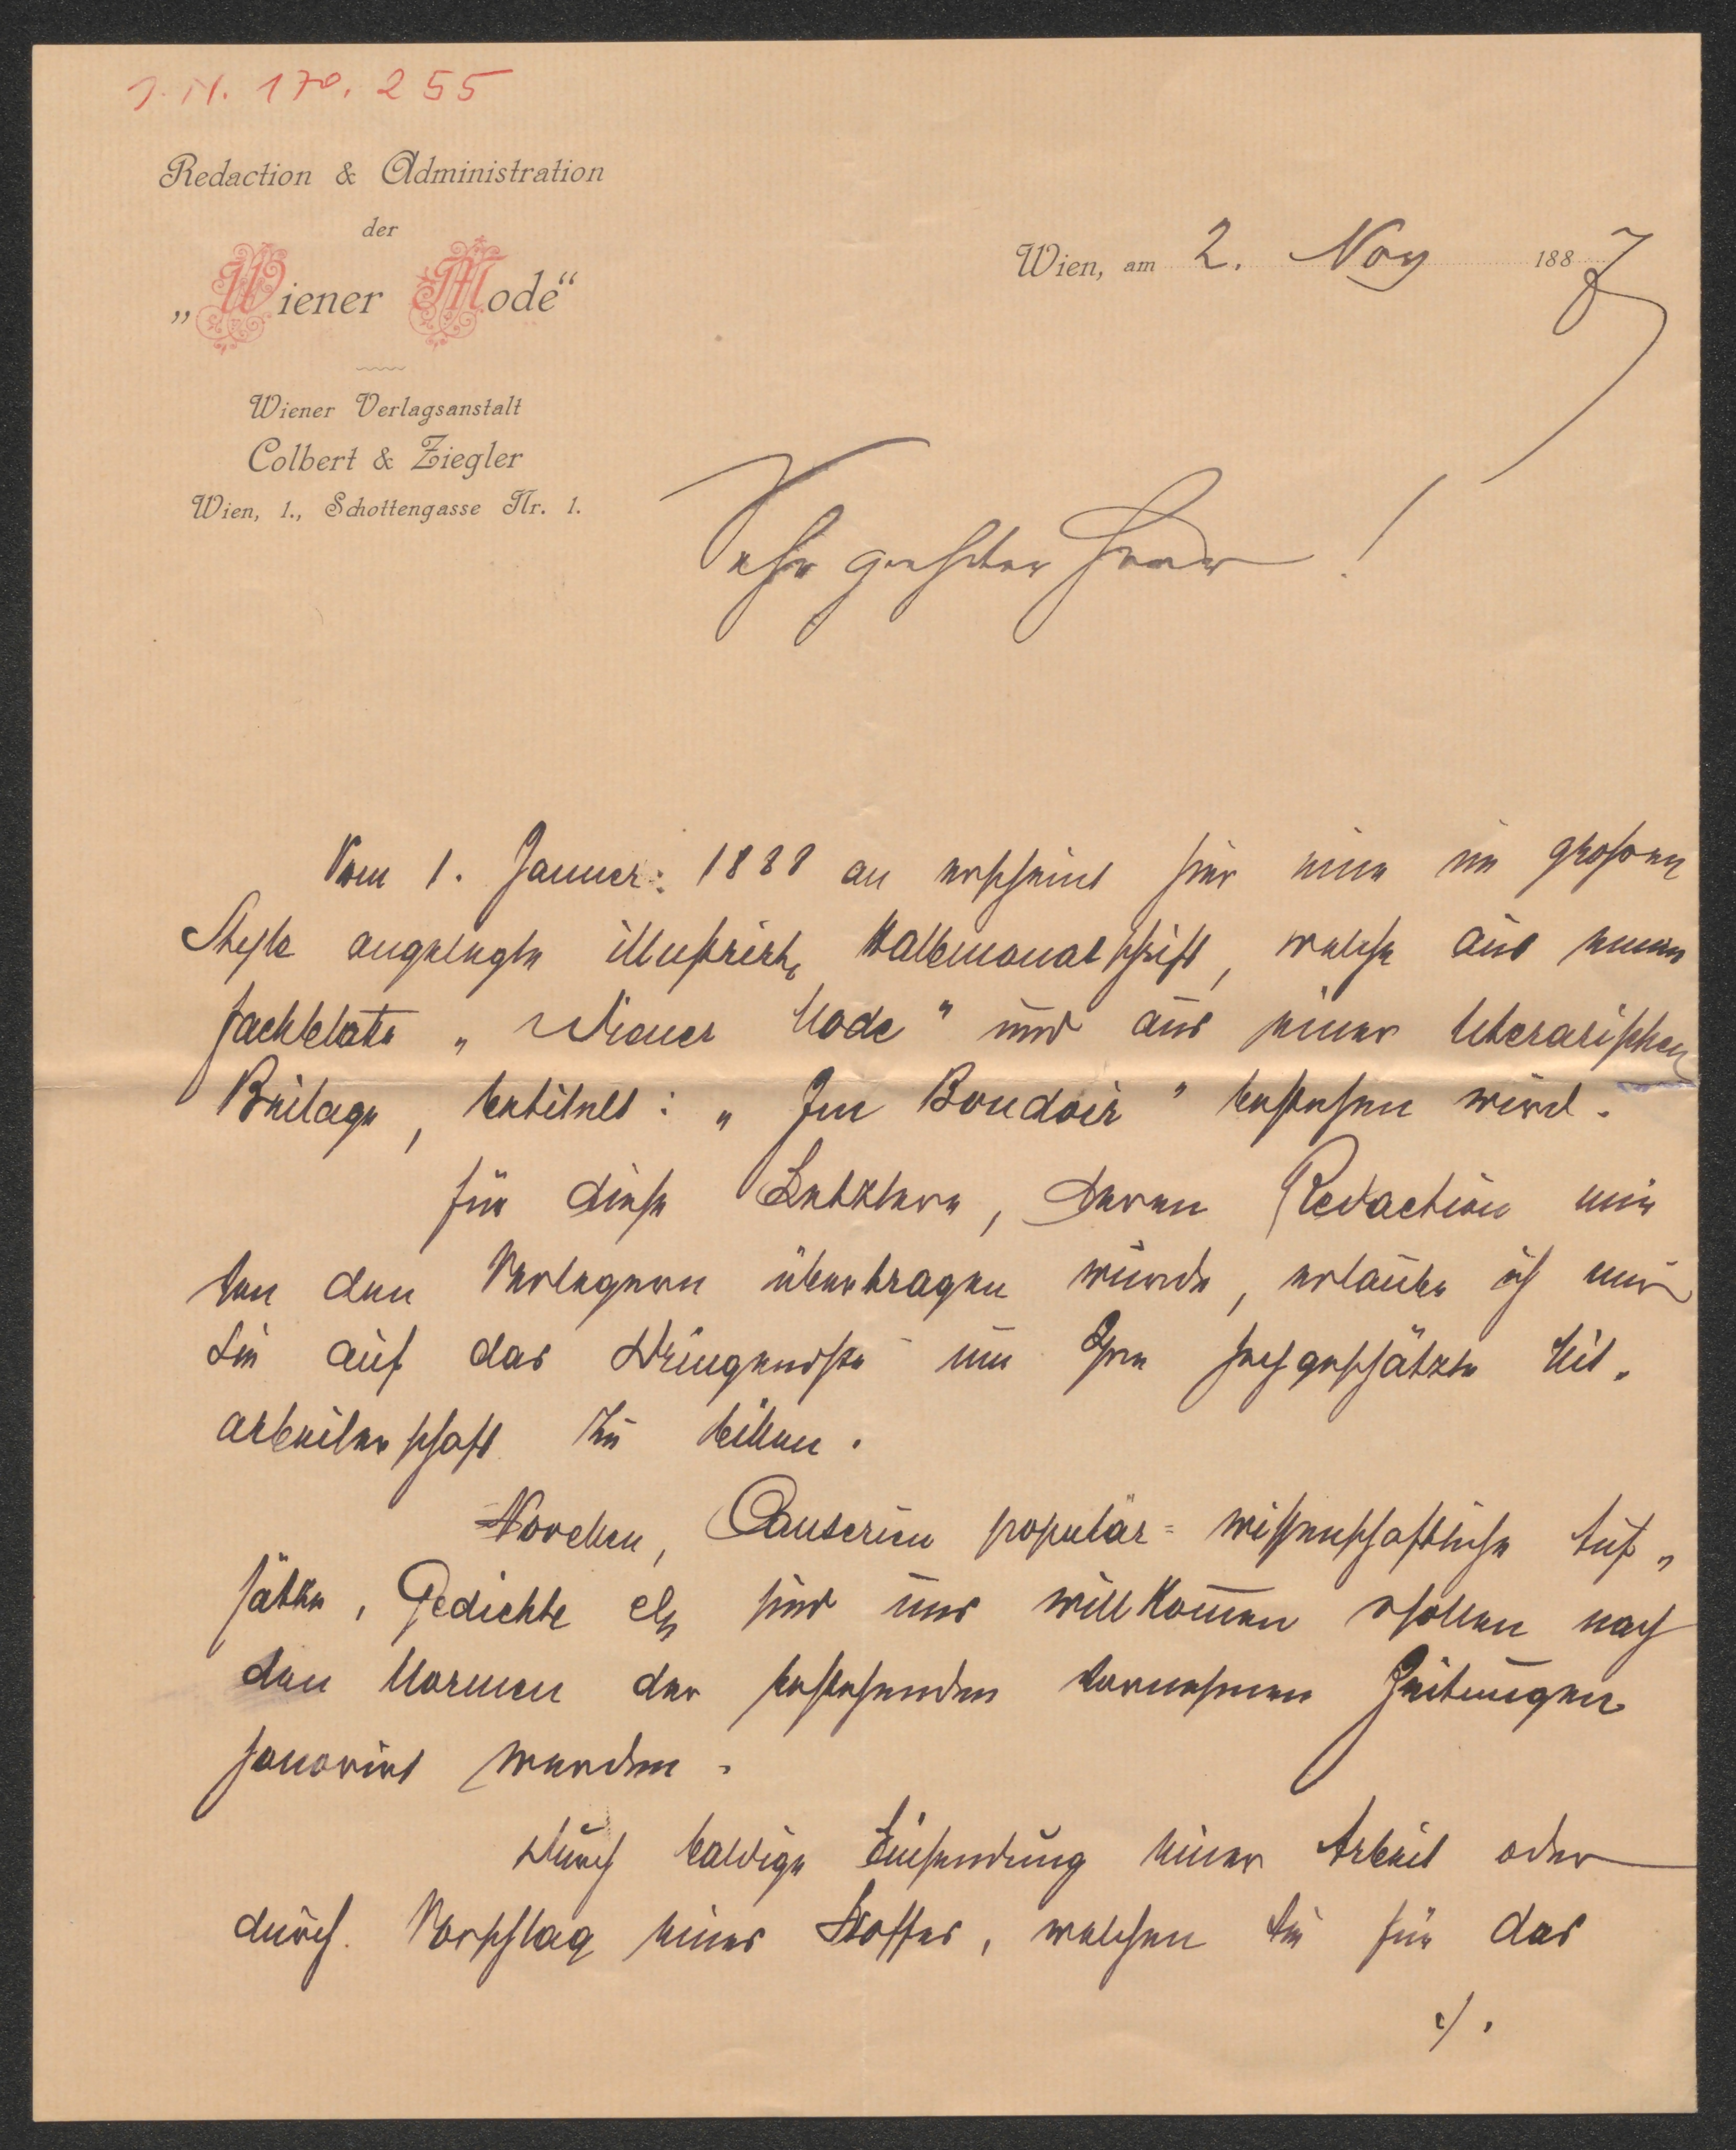 I. N. 170.255
Redaction & Administration
der
„Wiener Mode“
Wiener Verlagsanstalt
Colbert & Ziegler
Wien, 1., Schottengasse Nr. 1.
Wien, am 2. Nov 1887
Sehr geehrter Herr!
Vom 1. Januer: 1888 an erscheint hier eine im großen
Style angelegte illustrirte Halbmonatschrift, welche aus einem
Fachblatte „Wiener Mode“ und aus einer literarischen
Beilage, betitelt: „Im Boudoir“ bestehen wird.
Für diese Letztere, deren Redaction mir
von den Verlegern übertragen wurde, erlaube ich mir
Sie auf das Dringendste um Ihre hochgeschätzte Mit„
arbeiterschaft zu bitten.
Novellen, Causerien populär= wissenschaftliche Auf„
sätze, Gedichte etc sind uns willkom̄en sollen nach
den Normen der bestehenden vornehmen Zeitungen
honorirt werden.
Durch baldige Einsendung einer Arbeit oder
durch Vorschlag eines Stoffes, welchen Sie für das
./.